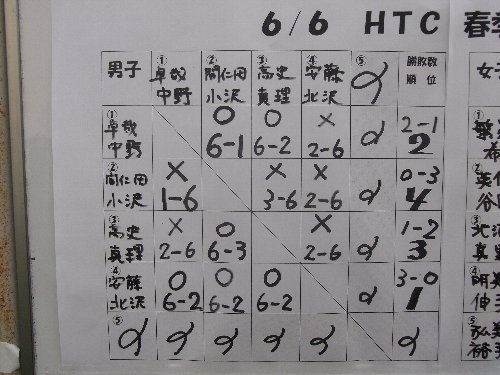 6/6 HTC 春季
男子 ① 卓敬 中野 ② 間仁田 小沢 ③ 高史 真理 ④ 安藤 北沢 ⑤ 勝敗数 順位
① 卓敬 中野 ○ 6-1 ○ 6-2 × 2-6 2-1 2
② 間仁田 小沢 × 1-6 × 3-6 × 2-6 0-3 4
③ 高史 真理 × 2-6 ○ 6-3 × 2-6 1-2 3
④ 安藤 北沢 ○ 6-2 ○ 6-2 ○ 6-2 3-0 1
⑤
女子
①
②
③ 北
④
⑤